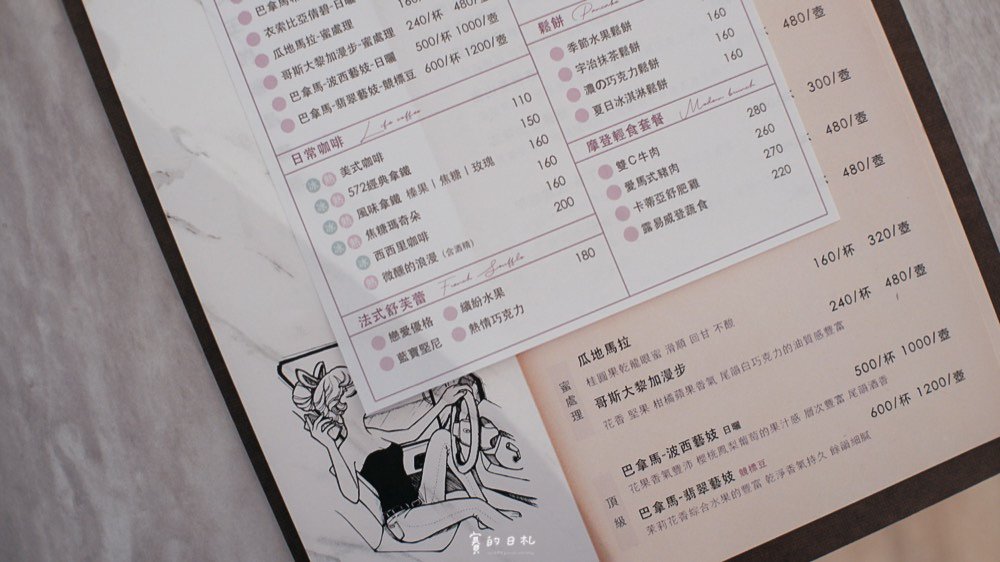 巴拿馬
衣索比亞倩碧-日曬 160
瓜地馬拉-蜜處理 240/杯 480/
哥斯大黎加漫步-蜜處理 500/杯 1000/壺
巴拿馬-波西藝妓-日曬 600/杯 1200/壺
巴拿馬-翡翠藝妓-競標豆
日常咖啡 Life coffee 110
美式咖啡 150
572經典拿鐵 160
風味拿鐵 榛果 | 焦糖 | 玫瑰 160
焦糖瑪奇朵 160
西西里咖啡 200
微醺的浪漫 (含酒精)
法式舒芙蕾 French Souffle 180
戀愛優格 繽紛水果
藍寶堅尼 熱情巧克力
鬆餅 Pancake 160
季節水果鬆餅 160
宇治抹茶鬆餅 160
濃の巧克力鬆餅
夏日冰淇淋鬆餅
摩登輕食套餐 Modern brunch 280
雙C牛肉 260
愛馬式豬肉 270
卡蒂亞舒肥雞 220
露易威登蔬食
480/壺
300/壺
480/壺
480/壺
160/杯 320/壺
蜜處理
瓜地馬拉 240/杯 480/壺
桂圓果乾龍眼蜜 滑順 回甘 不酸
哥斯大黎加漫步
花香 堅果 柑橘蘋果香氣 尾韻白巧克力的油質感豐富
500/杯 1000/壺
頂級
巴拿馬-波西藝妓 日曬
花果香氣豐沛 櫻桃鳳梨葡萄的果汁感 層次豐富 尾韻酒香
600/杯 1200/壺
巴拿馬-翡翠藝妓 競標豆
茉莉花香綜合水果的豐富 乾淨香氣持久 餘韻細膩
寶的日札